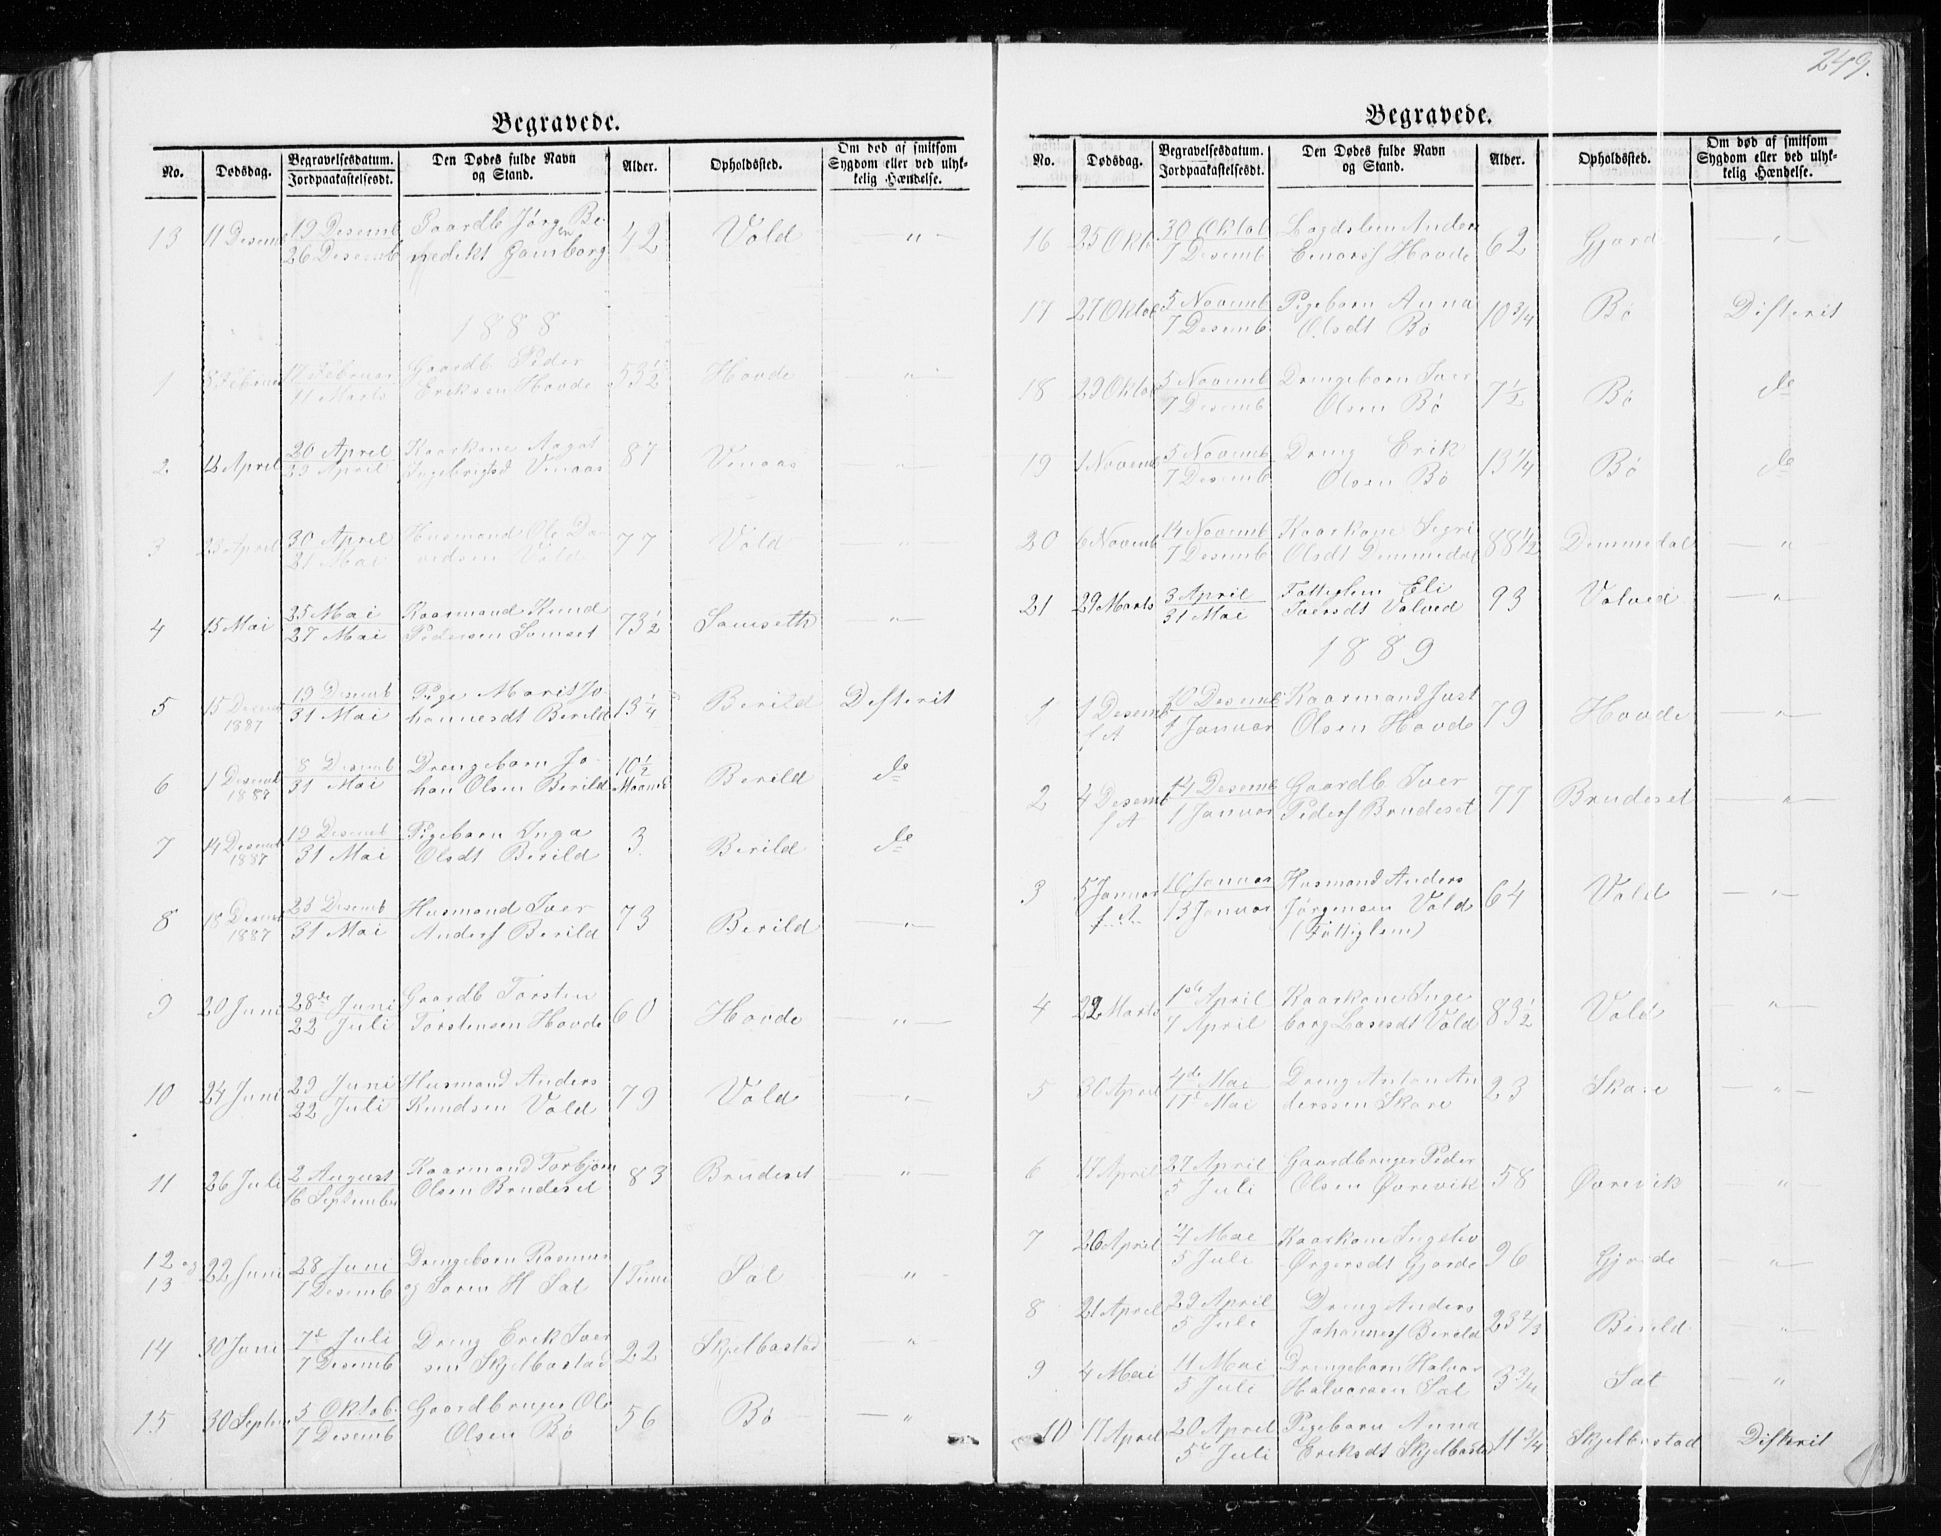 249.
Begravede.
No. Dødsdag. Begravelsesdatum. Jordpaakastelsesdt. Den Dødes fulde Navn og Stand. Alder. Opholdssted. Om død af smitsom Sygdom eller ved ulykkelig Hændelse.
13 11 Desemb 19 Desemb Gaardb Jørgen Be- 42 Vold — " —
26 Desemb nedikt Gamborg
1888
1 Februar 17 Februar Gaardb Peder 53 1/2 Hovde — " —
11 Marts Eriksen Hovde
2 12 April 20 April Kaarkone Aagot 87 Venaas "
29 April Ingebrigtsd Venaas
3 23 April 30 April Husmand Ole Da- 77 Vold — " —
21 Mai vedsen Vold
4 15 Mai 25 Mai Kaarmand Knud 73 1/2 Samseth — " —
27 Mai Pedersen Samset
5 15 Desemb 19 Desemb Pige Marit Jo- 13 1/4 Berild Difterit
1887 31 Mai hannesdt Berild
6 1 Desemb 8 Desemb Drengebarn Jo- 10 1/2 Berild do
1887 31 Mai han Olsen Berild Maaned
7 14 Desemb 19 Desemb Pigebarn Inga 3 Berild do
1887 31 Mai Olsdt Berild
8 18 Desemb 23 Desemb Husmand Iver 73 Berild — " —
1887 31 Mai Anders Berild
9 20 Juni 28de Juni Gaardb Torsten 60 Hovde — " —
22 Juli Torstensen Hovde
10 24 Juni 29 Juni Husmand Anders 79 Vold — " —
22 Juli Knudsen Vold
11 26 Juli 2 August Kaarmand Torbjørn 83 Brudeset — " —
16 September Olsen Brudeset
12 og 22 Juni 28 Juni Drengebarn Rasmus 1 Time Sæt "
13 7 Desemb og Søren H Sæt
14 30 Juni 7de Juli Dreng Erik Iver 22 Skjelbostad "
7 Desemb sen Skjelbostad
15 30 Septem 5 Oktob. Gaardbruger Ole 56 Bø — "
7 Desemb Olsen Bø
Begravede.
No. Dødsdag. Begravelsesdatum. Jordpaakastelsesdt. Den Dødes fulde Navn og Stand. Alder. Opholdssted. Om død af smitsom Sygdom eller ved ulykkelig Hændelse.
16 25 Okt 30 Oktob Lagdslem Anders 62 Gjørde — " —
7 Desemb Einars Hovde
17 27 Oktob 5 Novemb Pigebarn Anna 10 3/4 Bø Difterit
7 Desemb Olsdt Bø
18 29 Oktob 5 Novemb Drengebarn Iver 7 1/2 Bø do
7 Desemb Olsen Bø
19 1 Novemb 5 Novemb Dreng Erik 13 1/4 Bø do
7 Desemb Olsen Bø
20 6 Novemb 14 Novemb Kaarkone Segri 88 1/2 Demmedal — " —
7 Desemb Olsdt Demmedal
21 29 Marts 3 April Fattiglem Eli 93 Volved — " —
31 Mai Iversdt Volved
1889
1 1 Desemb 10 Desemb Kaarmand Just 79 Hovde — " —
f A 1 Januar Olsen Hovde
2 4 Desemb 14 Desemb Gaardb Iver 77 Brudeset — " —
f A 1 Januar Peders Brudeset
3 5 Januar 10 Januar Husmand Anders 64 Vold — " —
f. A. 13 Januar Jørgensen Vold
(Fattiglem)
4 22 Marts 1ste April Kaarkone Inge 83 1/2 Vold — " —
7 April borg Lasesdt Vold
5 30 April 4de Mai Dreng Anton An 23 Skare — " —
17de Mai derssen Skare
6 17 April 27 April Gaardbruger Peder 58 Øvrevik "
5 Juli Olsen Øvrevik
7 26 April 4 Mai Kaarkone Ingelev 96 Gjørde — " —
5 Juli Ørgersdt Gjørde
8 21 April 29 April Dreng Anders 23 2/3 Berild "
5 Juli Johanness Berild
9 4 Mai 11 Mai Drengebarn Halvor 3 3/4 Sæt "
5 Juli Halvorsen Sæt
10 17 April 20 April Pigebarn Anna 11 3/4 Skjelbostad Difterit
5te Juli Eriksdt Skjelbosta